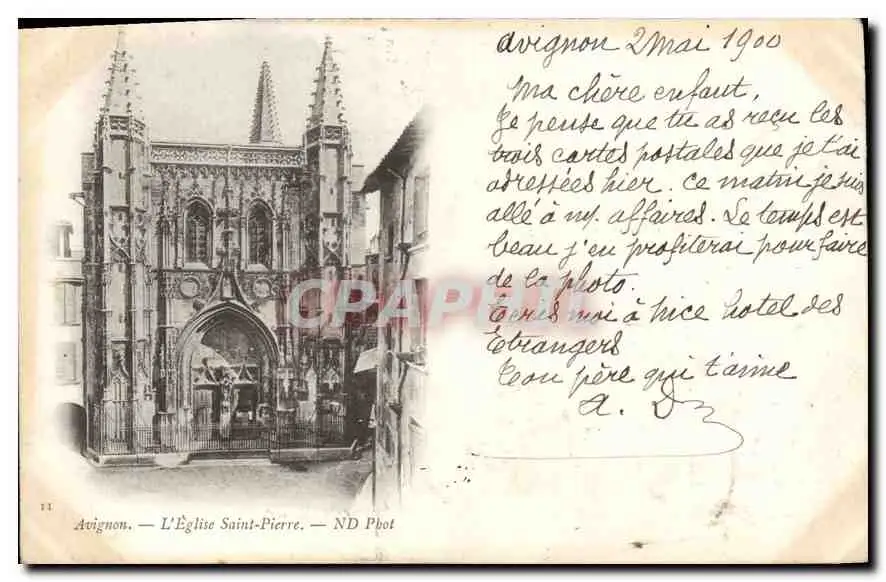 Avignon 2 Mai 1900
Ma chère enfant,
Je pense que tu as reçu les
trois cartes postales que je t'ai
adressées hier. Ce matin je suis
allé à mes affaires. Le temps est
beau j'en profiterai pour faire
de la photo.
Ecris moi à Nice hotel des
Etrangers
Ton père qui t'aime
A. D
CPARAMA
11
Avignon. — L'Église Saint-Pierre. — ND Phot